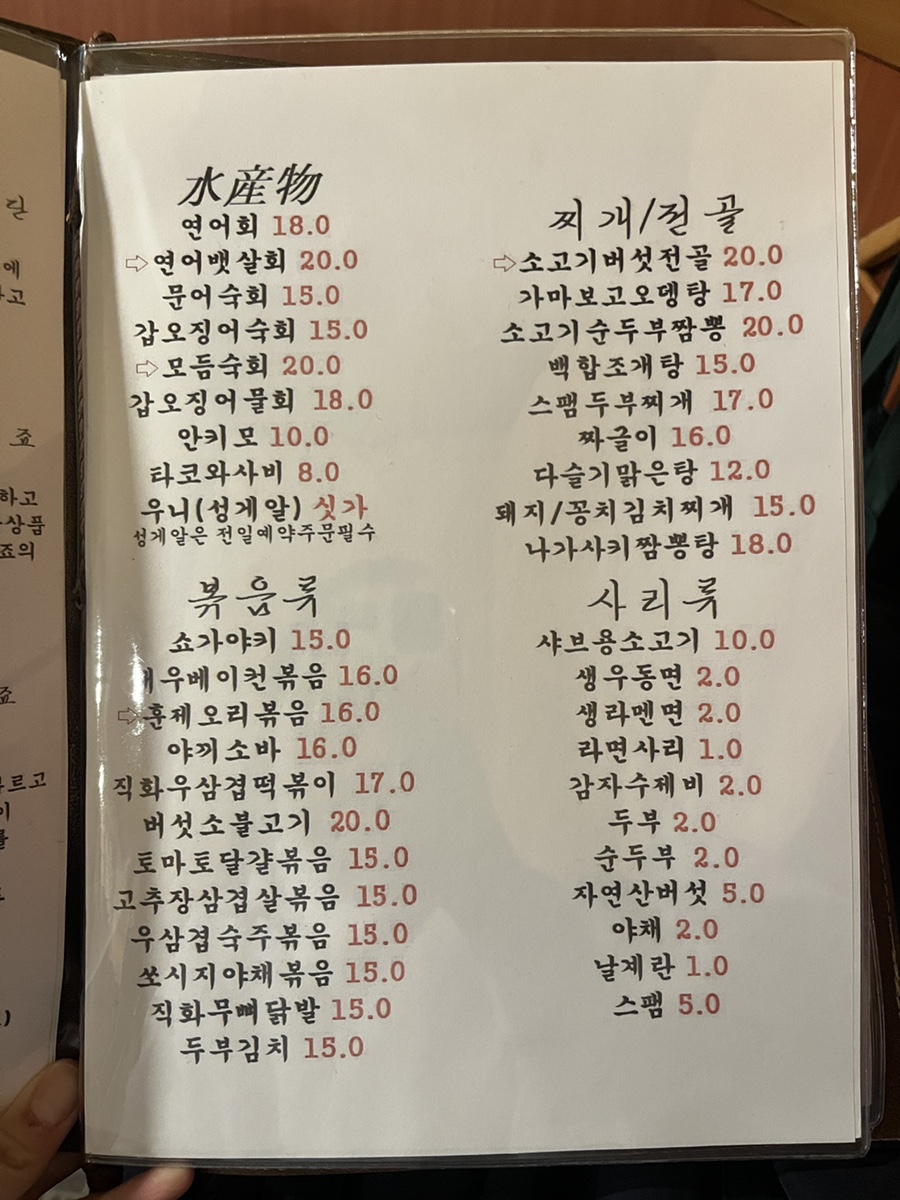 水産物
연어회 18.0
⇨연어뱃살회 20.0
문어숙회 15.0
갑오징어숙회 15.0
⇨모듬숙회 20.0
갑오징어물회 18.0
안키모 10.0
타코와사비 8.0
우니(성게알) 싯가
성게알은 전일예약주문필수
볶음류
쇼가야키 15.0
새우베이컨볶음 16.0
⇨훈제오리볶음 16.0
야끼소바 16.0
직화우삼겹떡볶이 17.0
버섯소불고기 20.0
토마토달걀볶음 15.0
고추장삼겹살볶음 15.0
우삼겹숙주볶음 15.0
쏘시지야채볶음 15.0
직화무뼈닭발 15.0
두부김치 15.0
찌개/전골
⇨소고기버섯전골 20.0
가마보고오뎅탕 17.0
소고기순두부짬뽕 20.0
백합조개탕 15.0
스팸두부찌개 17.0
짜글이 16.0
다슬기맑은탕 12.0
돼지/꽁치김치찌개 15.0
나가사키짬뽕탕 18.0
사리류
샤브용소고기 10.0
생우동면 2.0
생라멘면 2.0
라면사리 1.0
감자수제비 2.0
두부 2.0
순두부 2.0
자연산버섯 5.0
야채 2.0
날계란 1.0
스팸 5.0